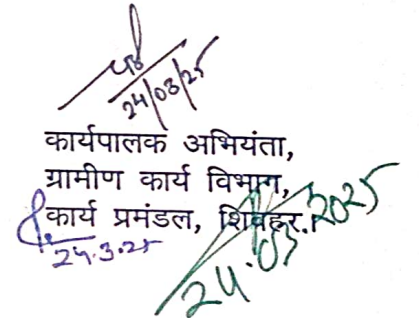 24/03/25
कार्यपालक अभियंता,
ग्रामीण कार्य विभाग,
कार्य प्रमंडल, शिवहर।
24.3.25
24.03.2025